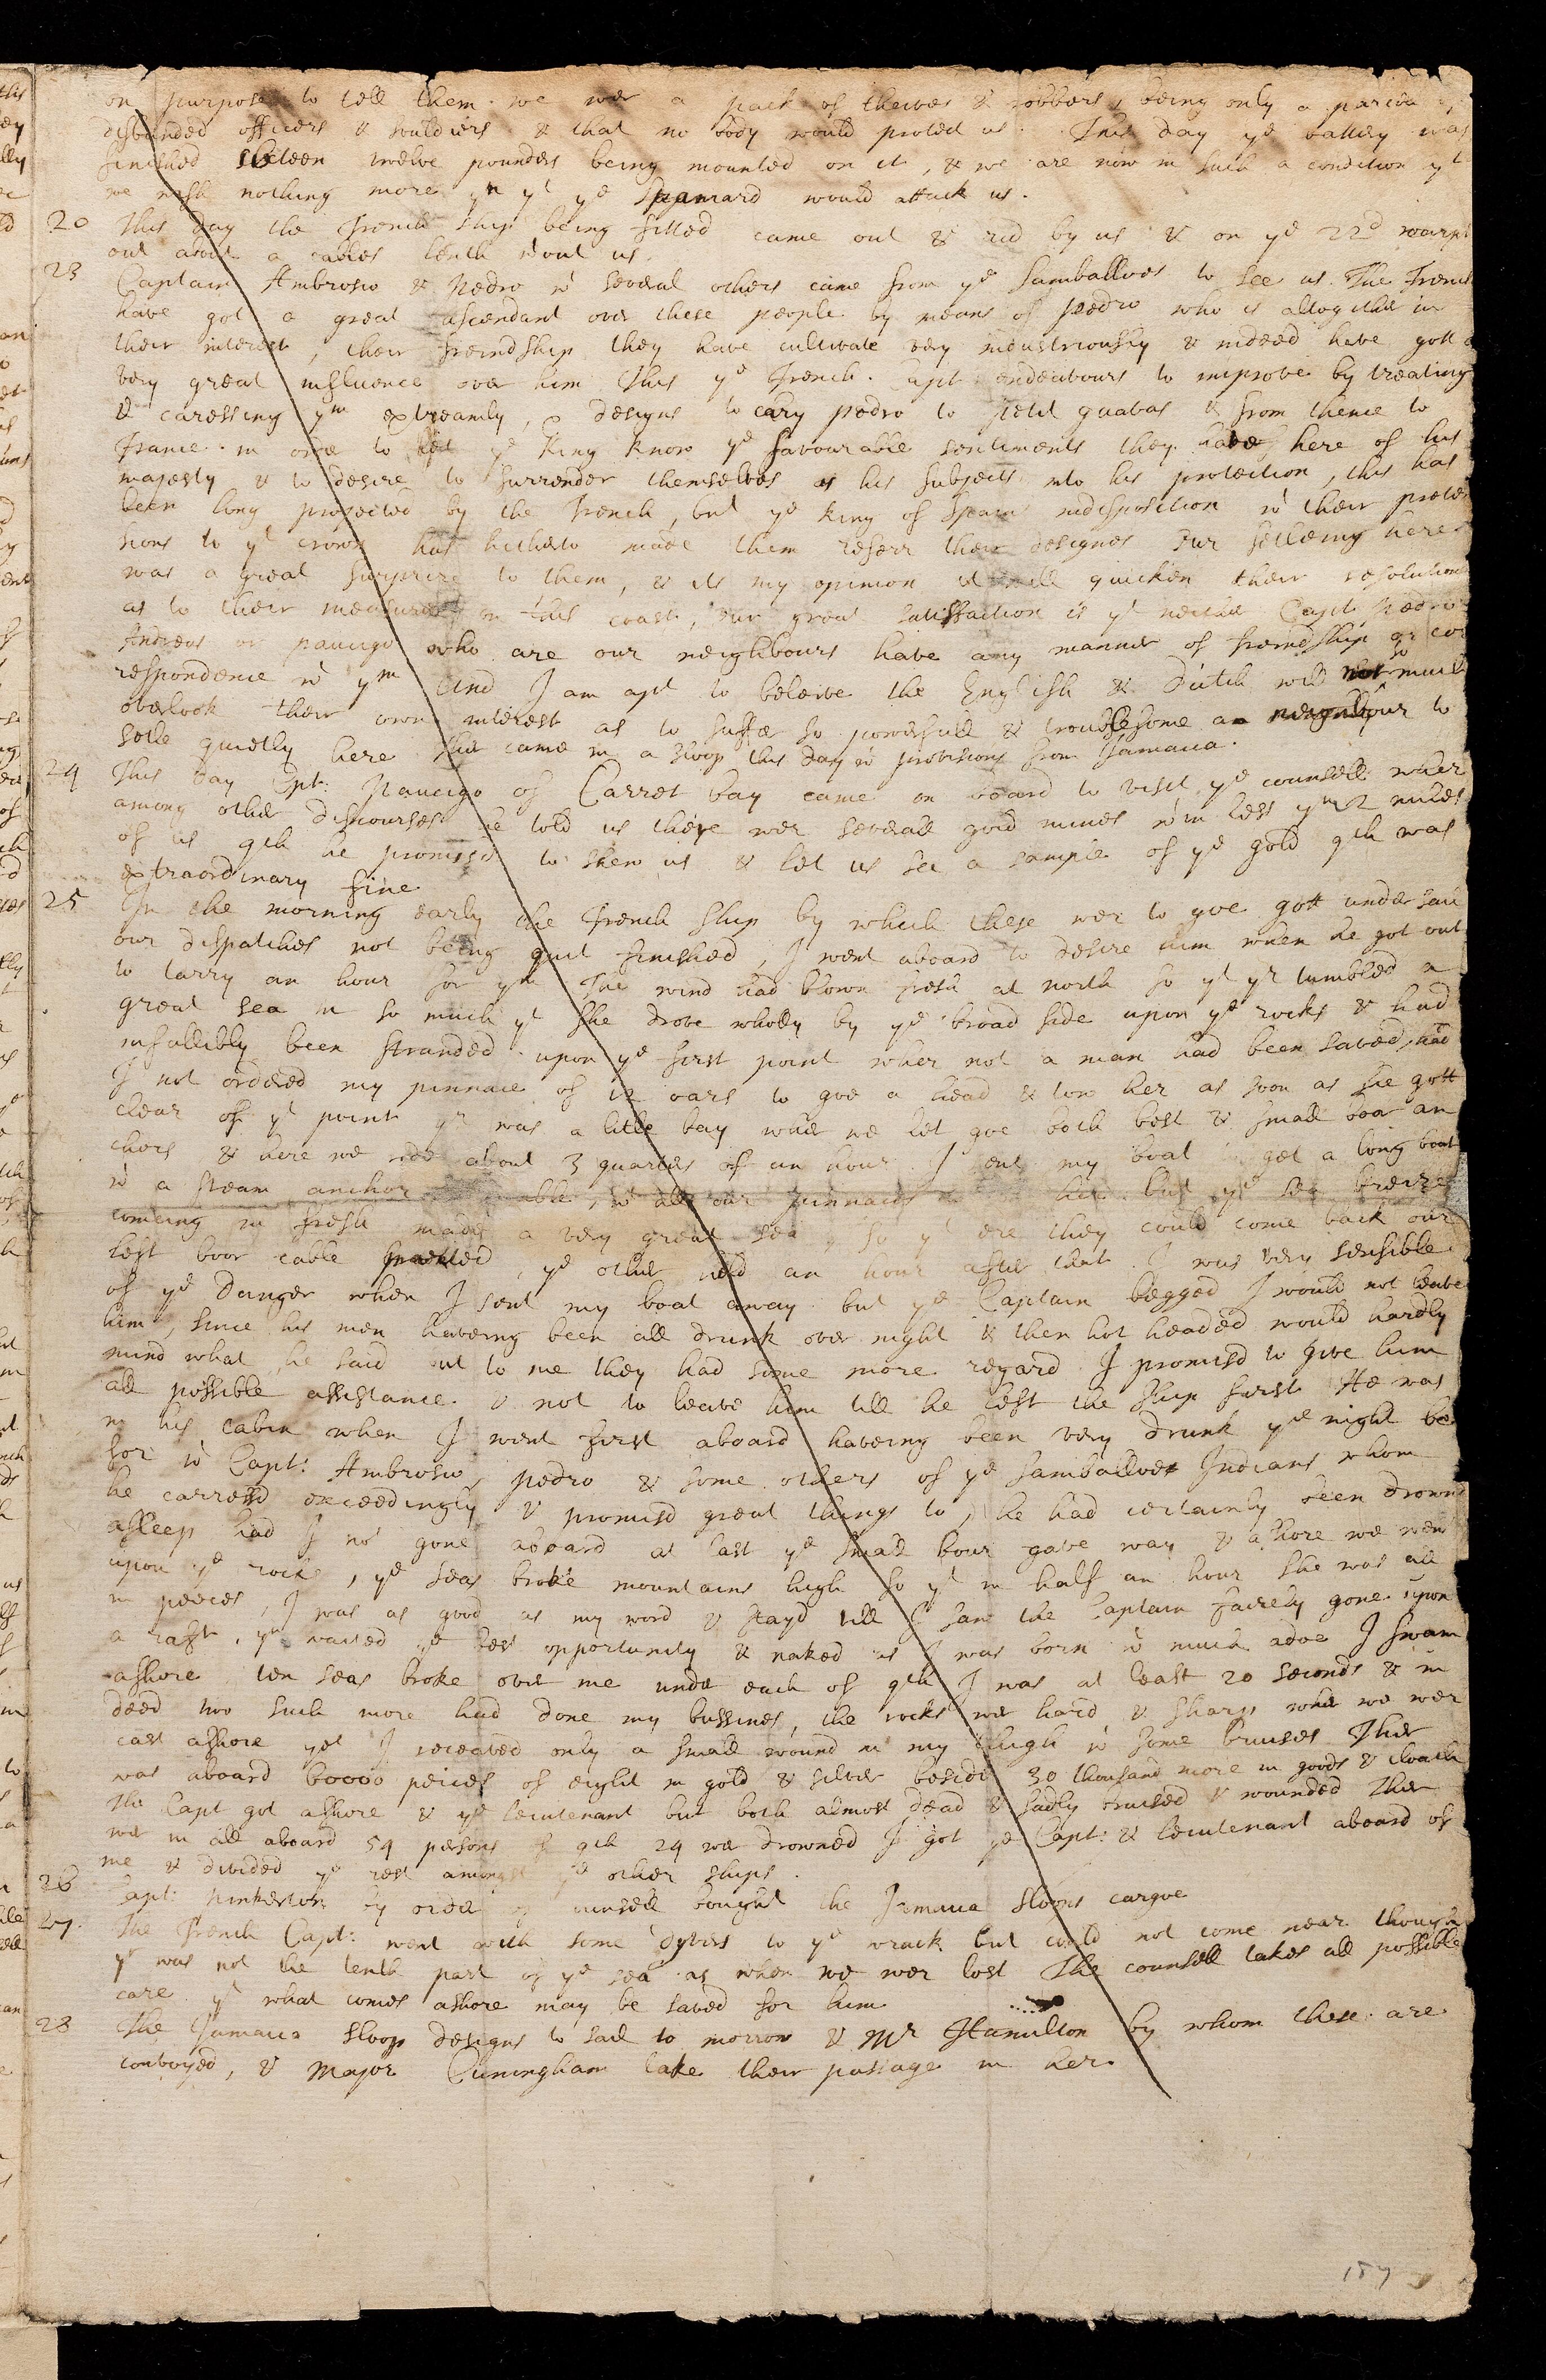 on purpose to tell them we wer a pack of theives & robbers, being only a parcell of
disbanded officers & souldiers & that no body would protect us. This day ye battery was
finished sixteen twelve pounders being mounted on it, & we are now in such a condition yt
we wish nothing more yn yt ye Spaniard would attack us.
20 This day the French ship being fitted came out & rid by us & on ye 22d warpt
out about a cables lenth wtout us.
23 Captain Ambrosio & Pedro wt several others came from ye Samballoes to see us. The French
have got a great ascendant over these people by means of Pedro who is altogither in
their interest, their freindship they have cultivate very industriously & indeed have gott a
very great influence over him this ye French Capt endeavours to improve by treating
& caressing ym extreamly, & designs to cary pedro to petit guavas & from thence to
France in order to let ye King know ye favourable sentiments they have here of his
majesty & to desire to surrender themselves as his subjects into his protection, this has
been long projected by the French, but ye King of Spains indisposition wt their preten
sions to yt crown has hitherto made them deferr their designes our setleing here
was a great surprize to them, & its my opinion it will quicken their resolutions
as to their measures on this coast, our great satisfaction is yt neither Capt Pedro
Andreas or pausigo who are our neighbours have any manner of freindship or cor
respondence wt ym And I am apt to beleive the English & Dutch will not so much
overlook their own interest as to suffer so powerfull & troublesome a neighbour to
setle quietly here ther came in a sloop this day wt provisions from Jamaica.
24 This day Cpt: Pausigo of Carret bay came on board to visit ye counsell wher
among other discourses he told us there wer severall gold mines wtin less yn 2 miles
of us qch he promised to shew us & let us see a sample of ye gold qch was
extraordinary fine
25 In the morning early the French ship by which these wer to goe gott under sail
our dispatches not being quit finished, I went aboard to desire him when he got out
to tarry an hour for ym The wind had blown fresh at north so yt yr tumbled a
great sea in so much yt she drove wholly by ye broad side upon ye rocks & had
infallibly been stranded upon ye first point wher not a man had been saved, had
I not ordered my pinnace of 12 oars to goe a head & tow her as soon as she gott
clear of yt point yr was a litle bay wher we let goe both best & small boar an
chors & here we rode about 3 quarters of an hour I sent my boat to get a long boat
wt a stream anchor & cable, wt all our pinnaces her but ye sea breize
comeing in fresh made a very great sea, so yt ere they could come back our
best boor cable parted, ye other held an hour after that. I was very sensible
of ye danger when I sent my boat away but ye Captain begged I would not leave
him, since his men haveing been all drunk over night & then hot headed would hardly
mind what he said but to me they had some more regard I promisd to give him
all possible assistance & not to leave him till he left the ship first He was
in his cabin when I went first aboard haveing been very drunk ye night be
for wt Capt: Ambrosio, pedro & some others of ye Samballoes Indians whom
he carressd exceedingly & promisd great things to, he had certainly been drownd
asleep had I not gone aboard at last ye small bour gave way & ashore we went
upon ye rocks, ye seas broke mountains high so yt in half an hour she was all
in peeces, I was as good as my word & stayd till I saw the Captain fairely gone upon
a raft, yn waited ye best opportunity & naked as I was born wt much adoe I swam
ashore ten seas broke over me under each of qch I was at least 20 seconds & in
deed two such more had done my bussines, the rocks wer hard & sharp wher we wer
cast ashore yet I receaved only a small wound in my thigh wt some bruises Ther
was aboard 60000 peices of eight in gold & silver beside 30 thousand more in goods & cloath
The Capt got ashore & ye leiutenant but both almost dead & sadly bruised & wounded Ther
wer in all aboard 54 persons of qch 24 wer drowned I got ye Capt: & leiutenant aboard of
me & divided ye rest amongst ye other ships.
26 Capt: Pinkerton by order of counsell bought the Jamaica sloops cargoe
27. The French Capt: went with some dyvers to ye wrack but could not come near though
yr was not the tenth part of ye sea as when we wer lost The counsell takes all possible
care yt what comes ashore may be saved for him
28 The Jamaica sloop designs to sail to morrow & Mr Hamilton by whom these are
convoyed, & Major Cuningham take their passage in her.
157